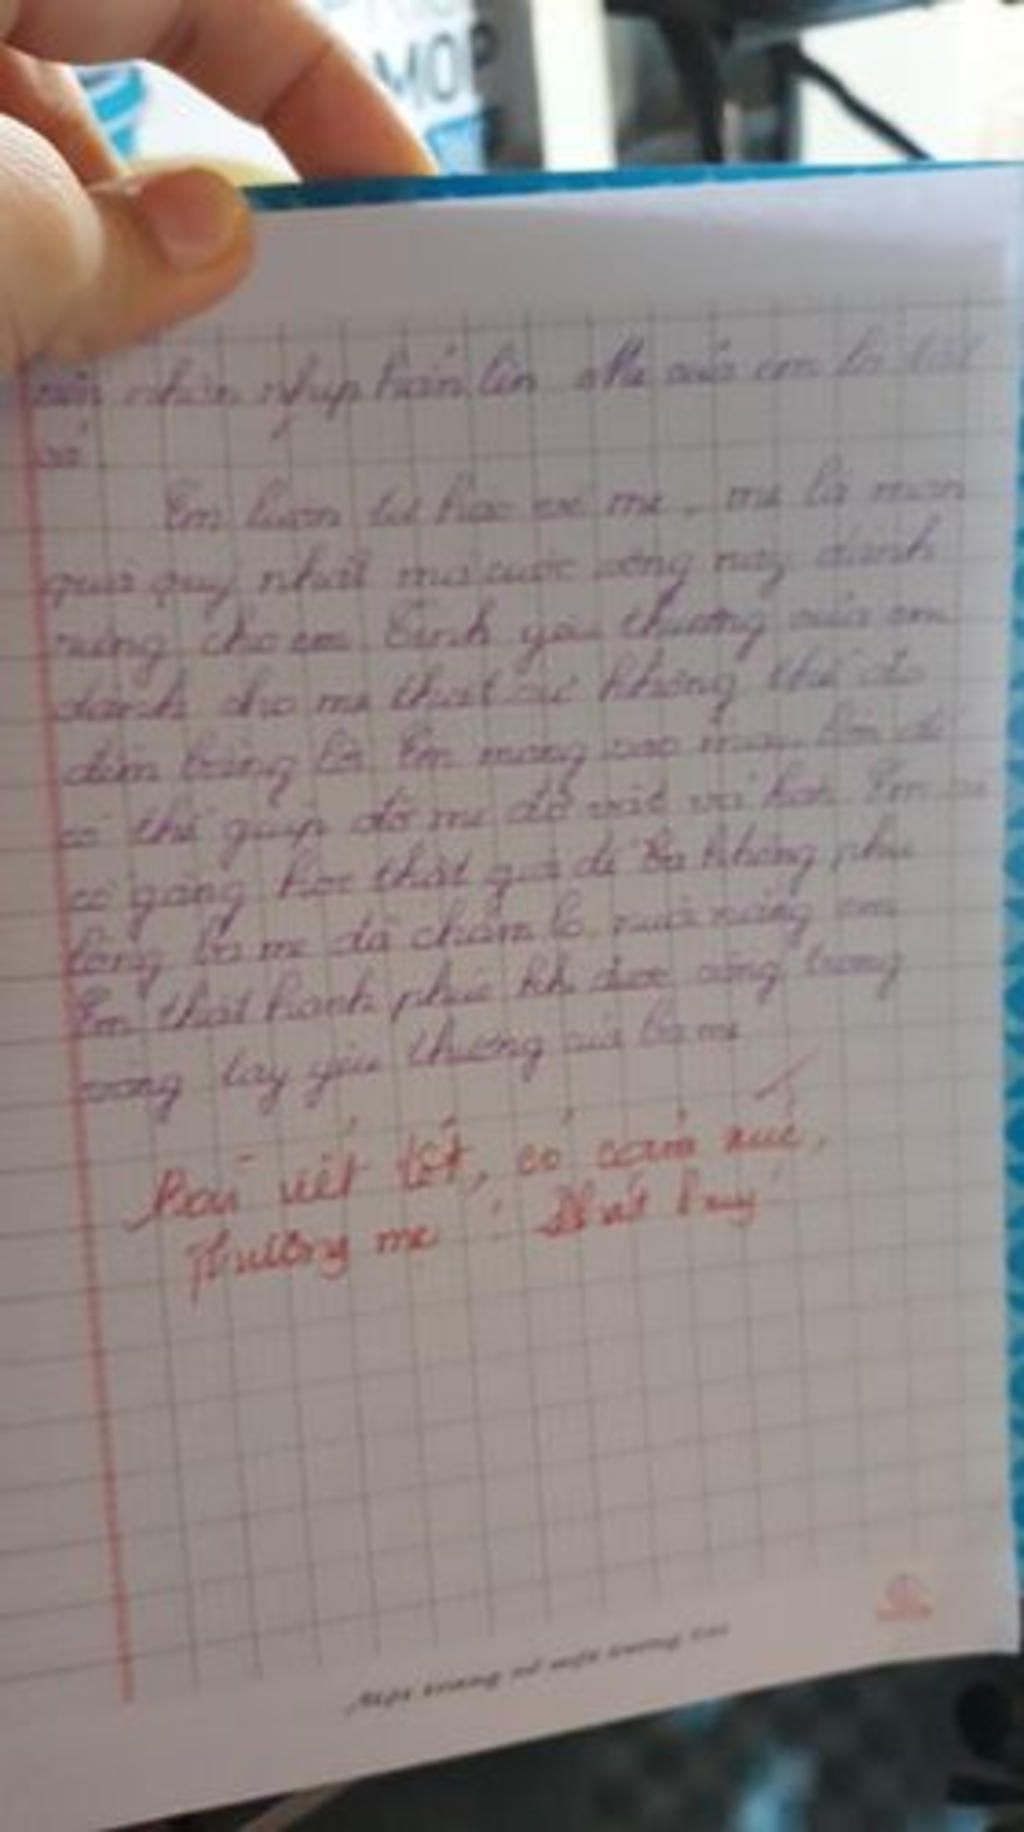 MOP
nên nhộn nhịp hẳn lên. Mẹ của em là tất
cả
Em luôn tự hào về mẹ, mẹ là món
quà quý nhất mà cuộc sống này dành
riêng cho em. Tình yêu thương của em
dành cho mẹ thật sự không thể đo
đếm bằng lời. Em mong sao mau lớn để
có thể giúp đỡ mẹ đỡ vất vả hơn. Em sẽ
cố gắng học thật giỏi để không phụ
lòng ba mẹ đã chăm lo nuôi nấng em
Em thật hạnh phúc khi được sống trong
vòng tay yêu thương của ba mẹ
Bài viết tốt, có cảm xúc,
thương mẹ
Một trang vở một tương lai